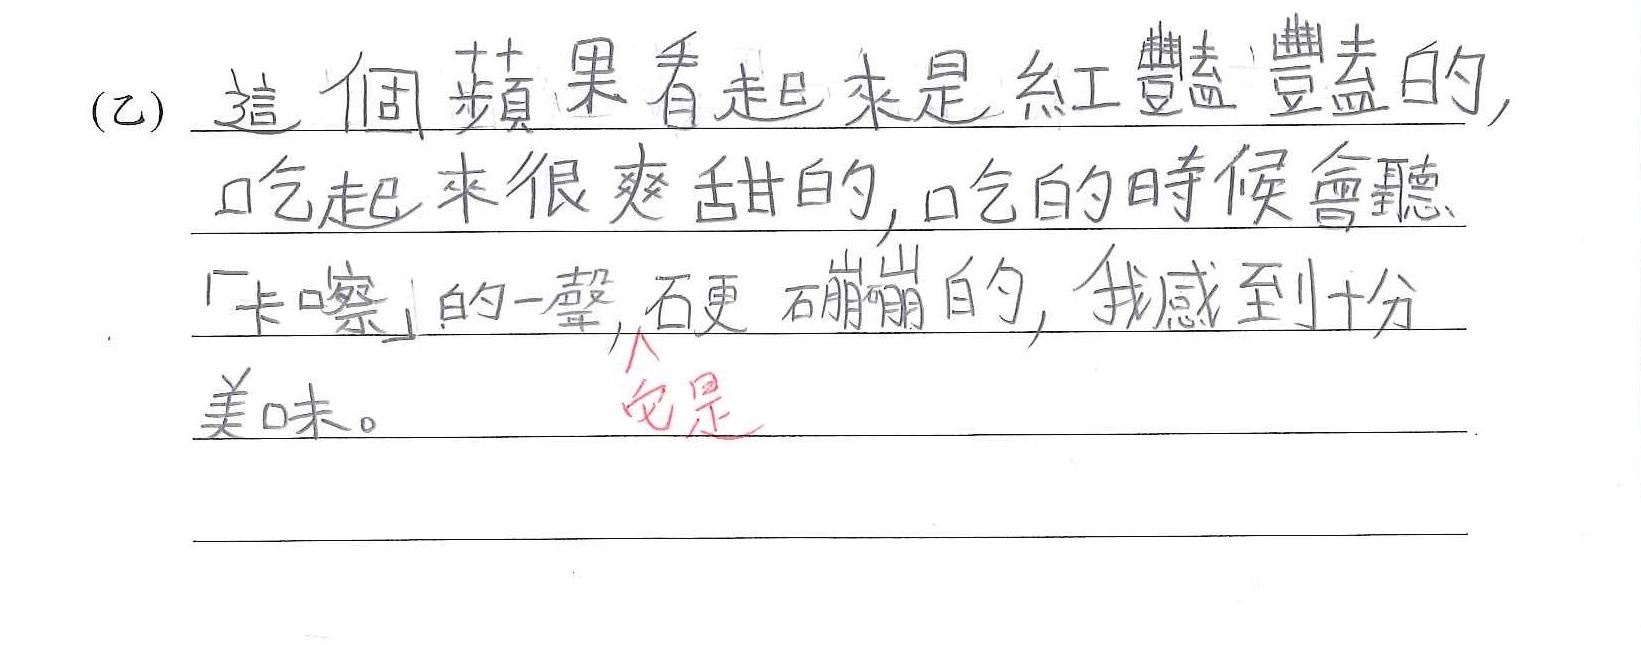 (乙) 這個蘋果看起來是紅豔豔的,
吃起來很爽甜的,吃的時候會聽
「卡嚓」的一聲,硬硼硼的,我感到十分
它是
美味。